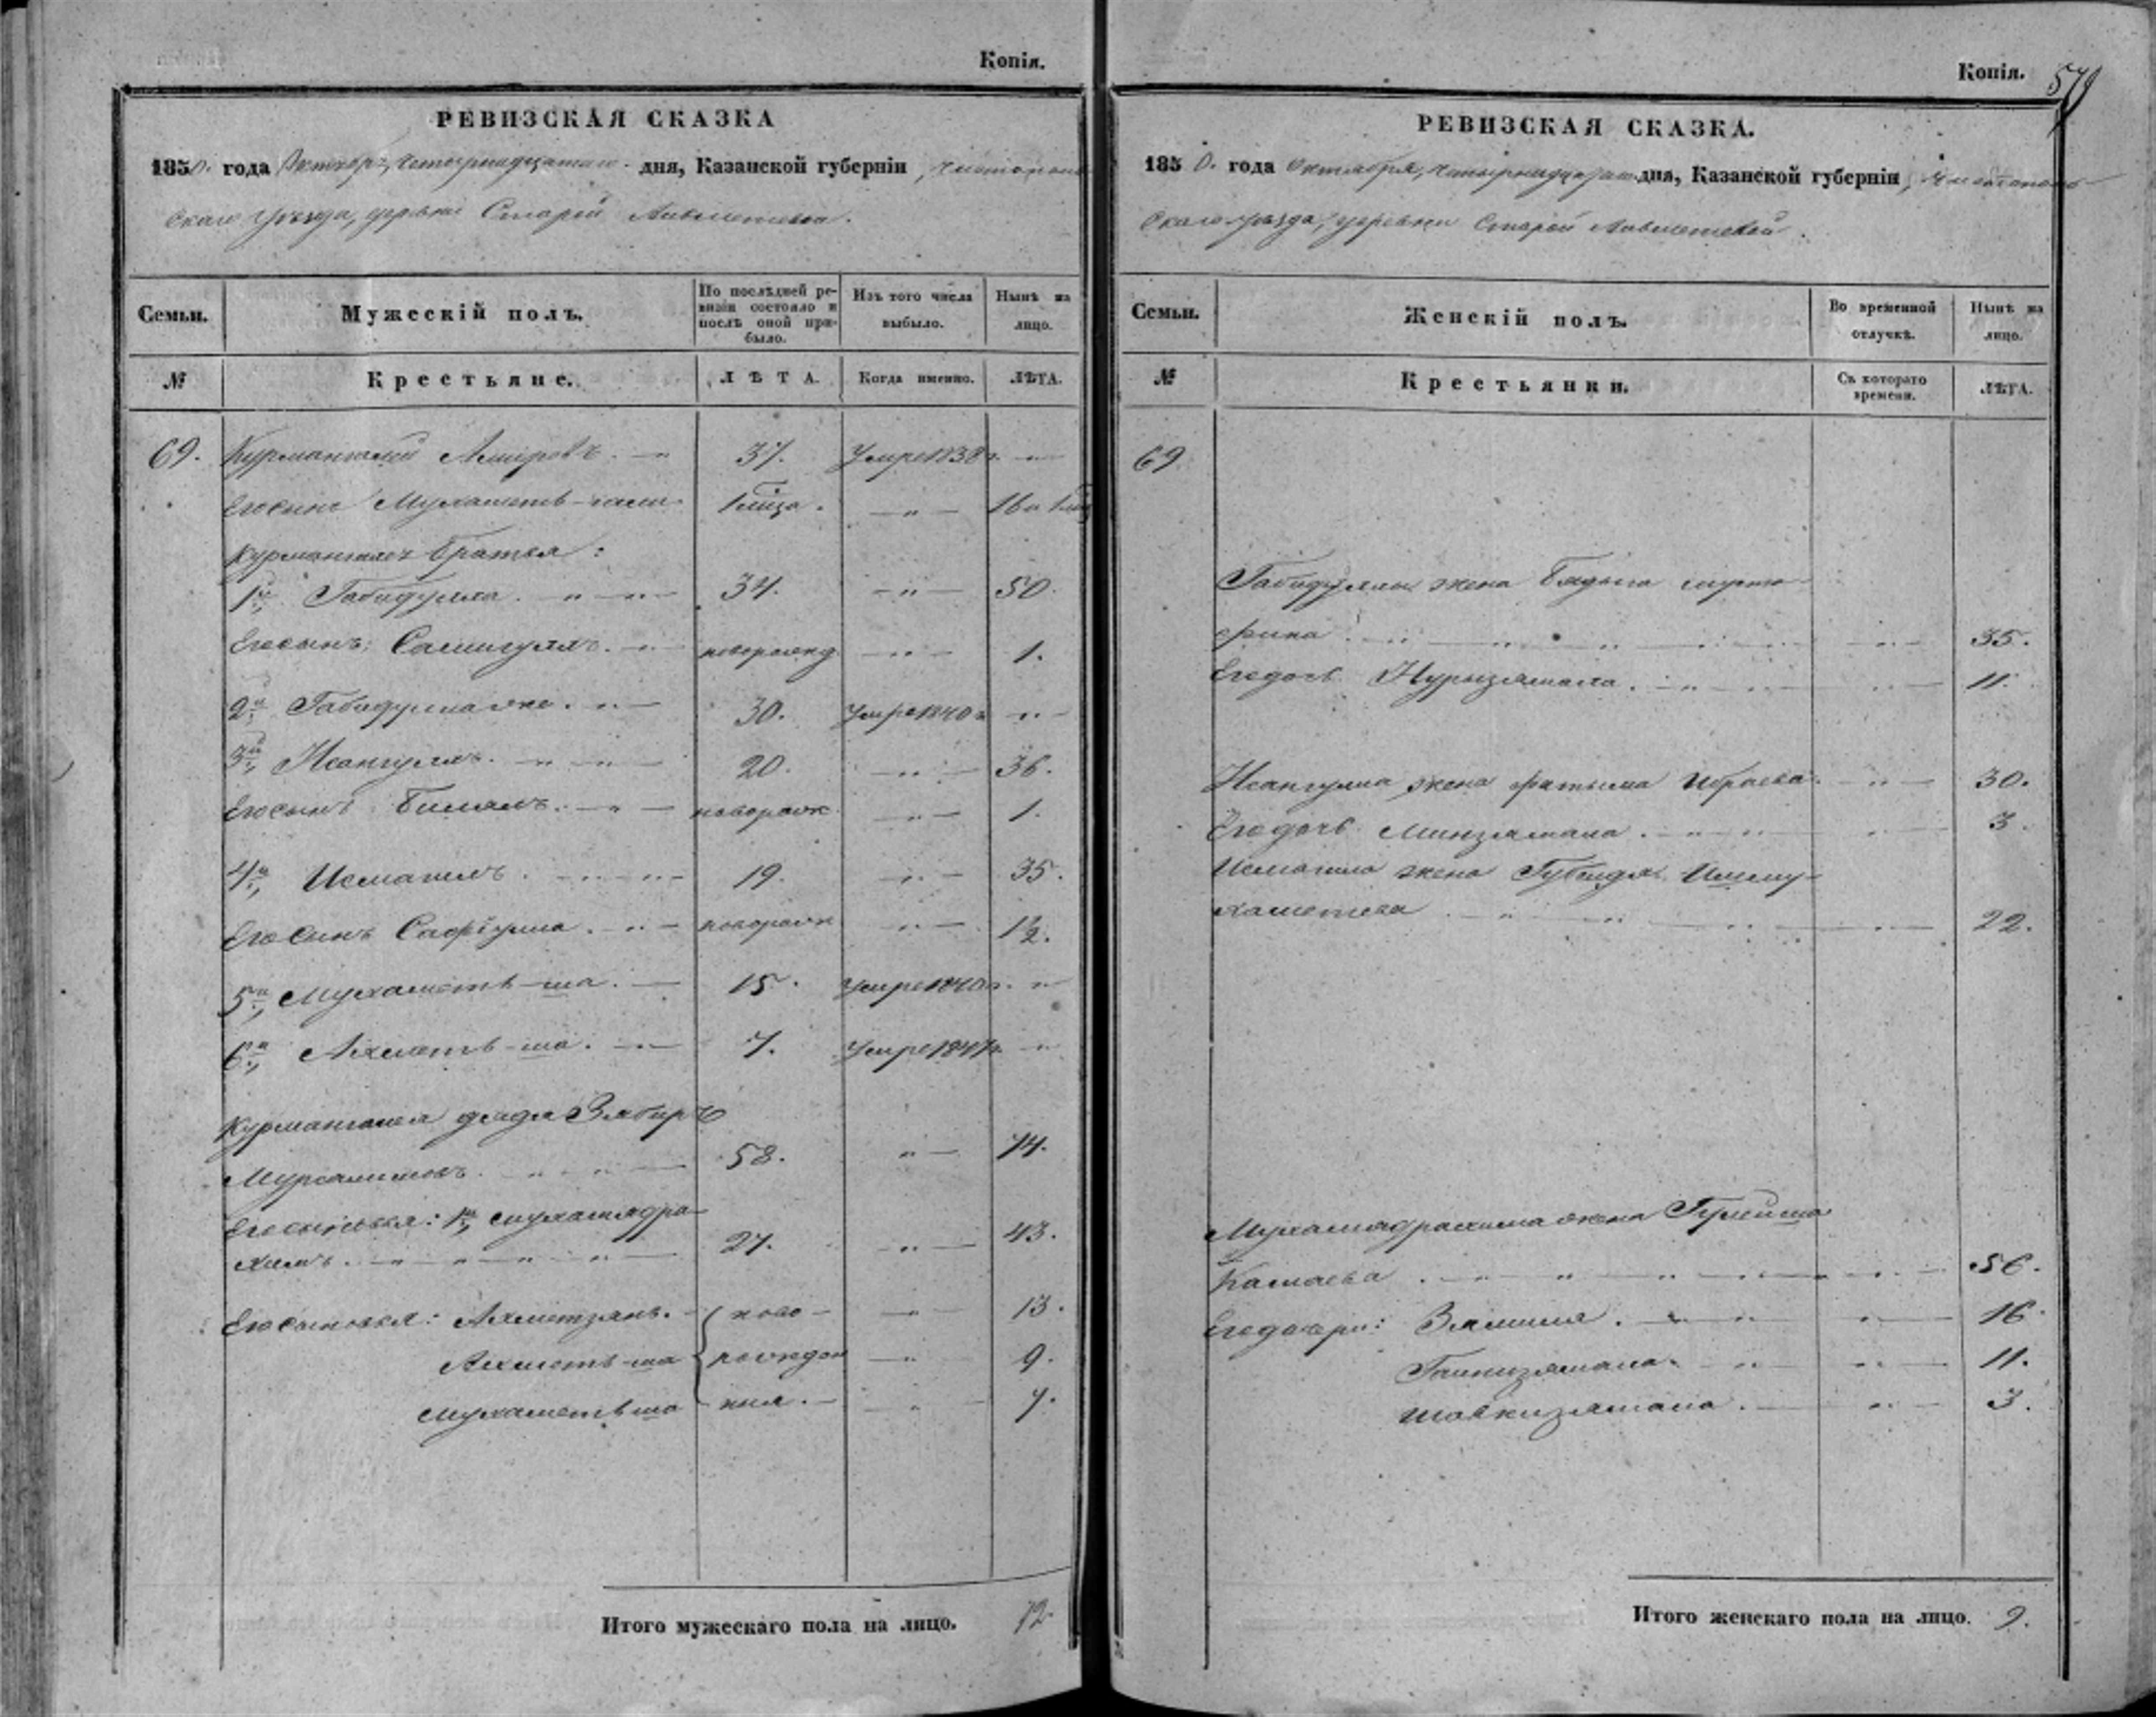 Копія.
РЕВИЗСКАЯ СКАЗКА
1850. года Октября, четырнадцатаго дня, Казанской губерніи, Чистополь-
скаго уѣзда, деревни Старой
Семьи.
Мужескій полъ.
По послѣдней ре-
визіи состояло и
послѣ оной при-
было.
Изъ того числа
выбыло.
Нынѣ на
лицо.
№
Крестьяне.
ЛѢТА.
Когда именно.
ЛѢТА.
69. Курмангалей Амировъ. 37. Умре 1838 г.
Его сынъ Мухаметъ-гали 1 мѣца. 16 и 1 мѣ
Курмангалея братья:
1й, Габидулла. 34. 50.
Его сынъ: Самигуллъ. новорожд. 1.
2й, 30. Умре 1840 г.
3й, Исангулъ. 20. 36.
Его сынъ Билялъ. новорож. 1.
4й, Исмагилъ. 19. 35.
Его сынъ Сафіулла. новорож. 1/2.
5й, Мухаметъ-ша. 15. Умре 1840 г.
6й, Ахметъ-ша. 7. Умре 1847 г.
Курмангалея дядя Зябиръ
Мурсалимовъ. 58. 74.
Его сыновья: 1й, Мухамядра-
химъ. 27. 43.
Его сыновья: Ахметзянъ. ново- 13.
Ахметъ-ша рожден 9.
Мухаметъ ша нія. 7.
Итого мужескаго пола на лицо. 12.
Копія. 579
РЕВИЗСКАЯ СКАЗКА.
1850. года Октября, четырнадцатаго дня, Казанской губерніи, Чистополь-
скаго уѣзда, деревни Старой
Семьи.
Женскій полъ.
Во временной
отлучкѣ.
Нынѣ на
лицо.
№
Крестьянки.
Съ котораго
времени.
ЛѢТА.
69
Габидуллы жена Бядыга
фина. 35.
Его дочь Нурызямала. 11.
Исангула жена Фатыма Ибраева. 30.
Его дочь Минзямала. 3.
Исмагила жена Ишму-
хаметева. 22.
Мухамядрахима жена
Камаева. 56.
Его дочери: Зямиля. 16.
Гайнизямала. 11.
Шавкизямала. 3.
Итого женскаго пола на лицо. 9.